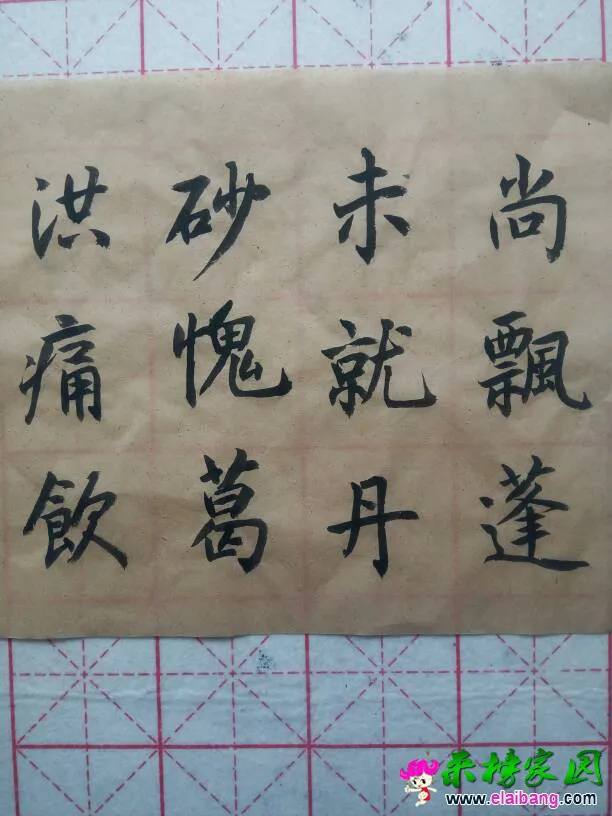 尚飄蓬
未就丹
砂愧葛
洪痛飲
来榜家园
www.elaibang.com